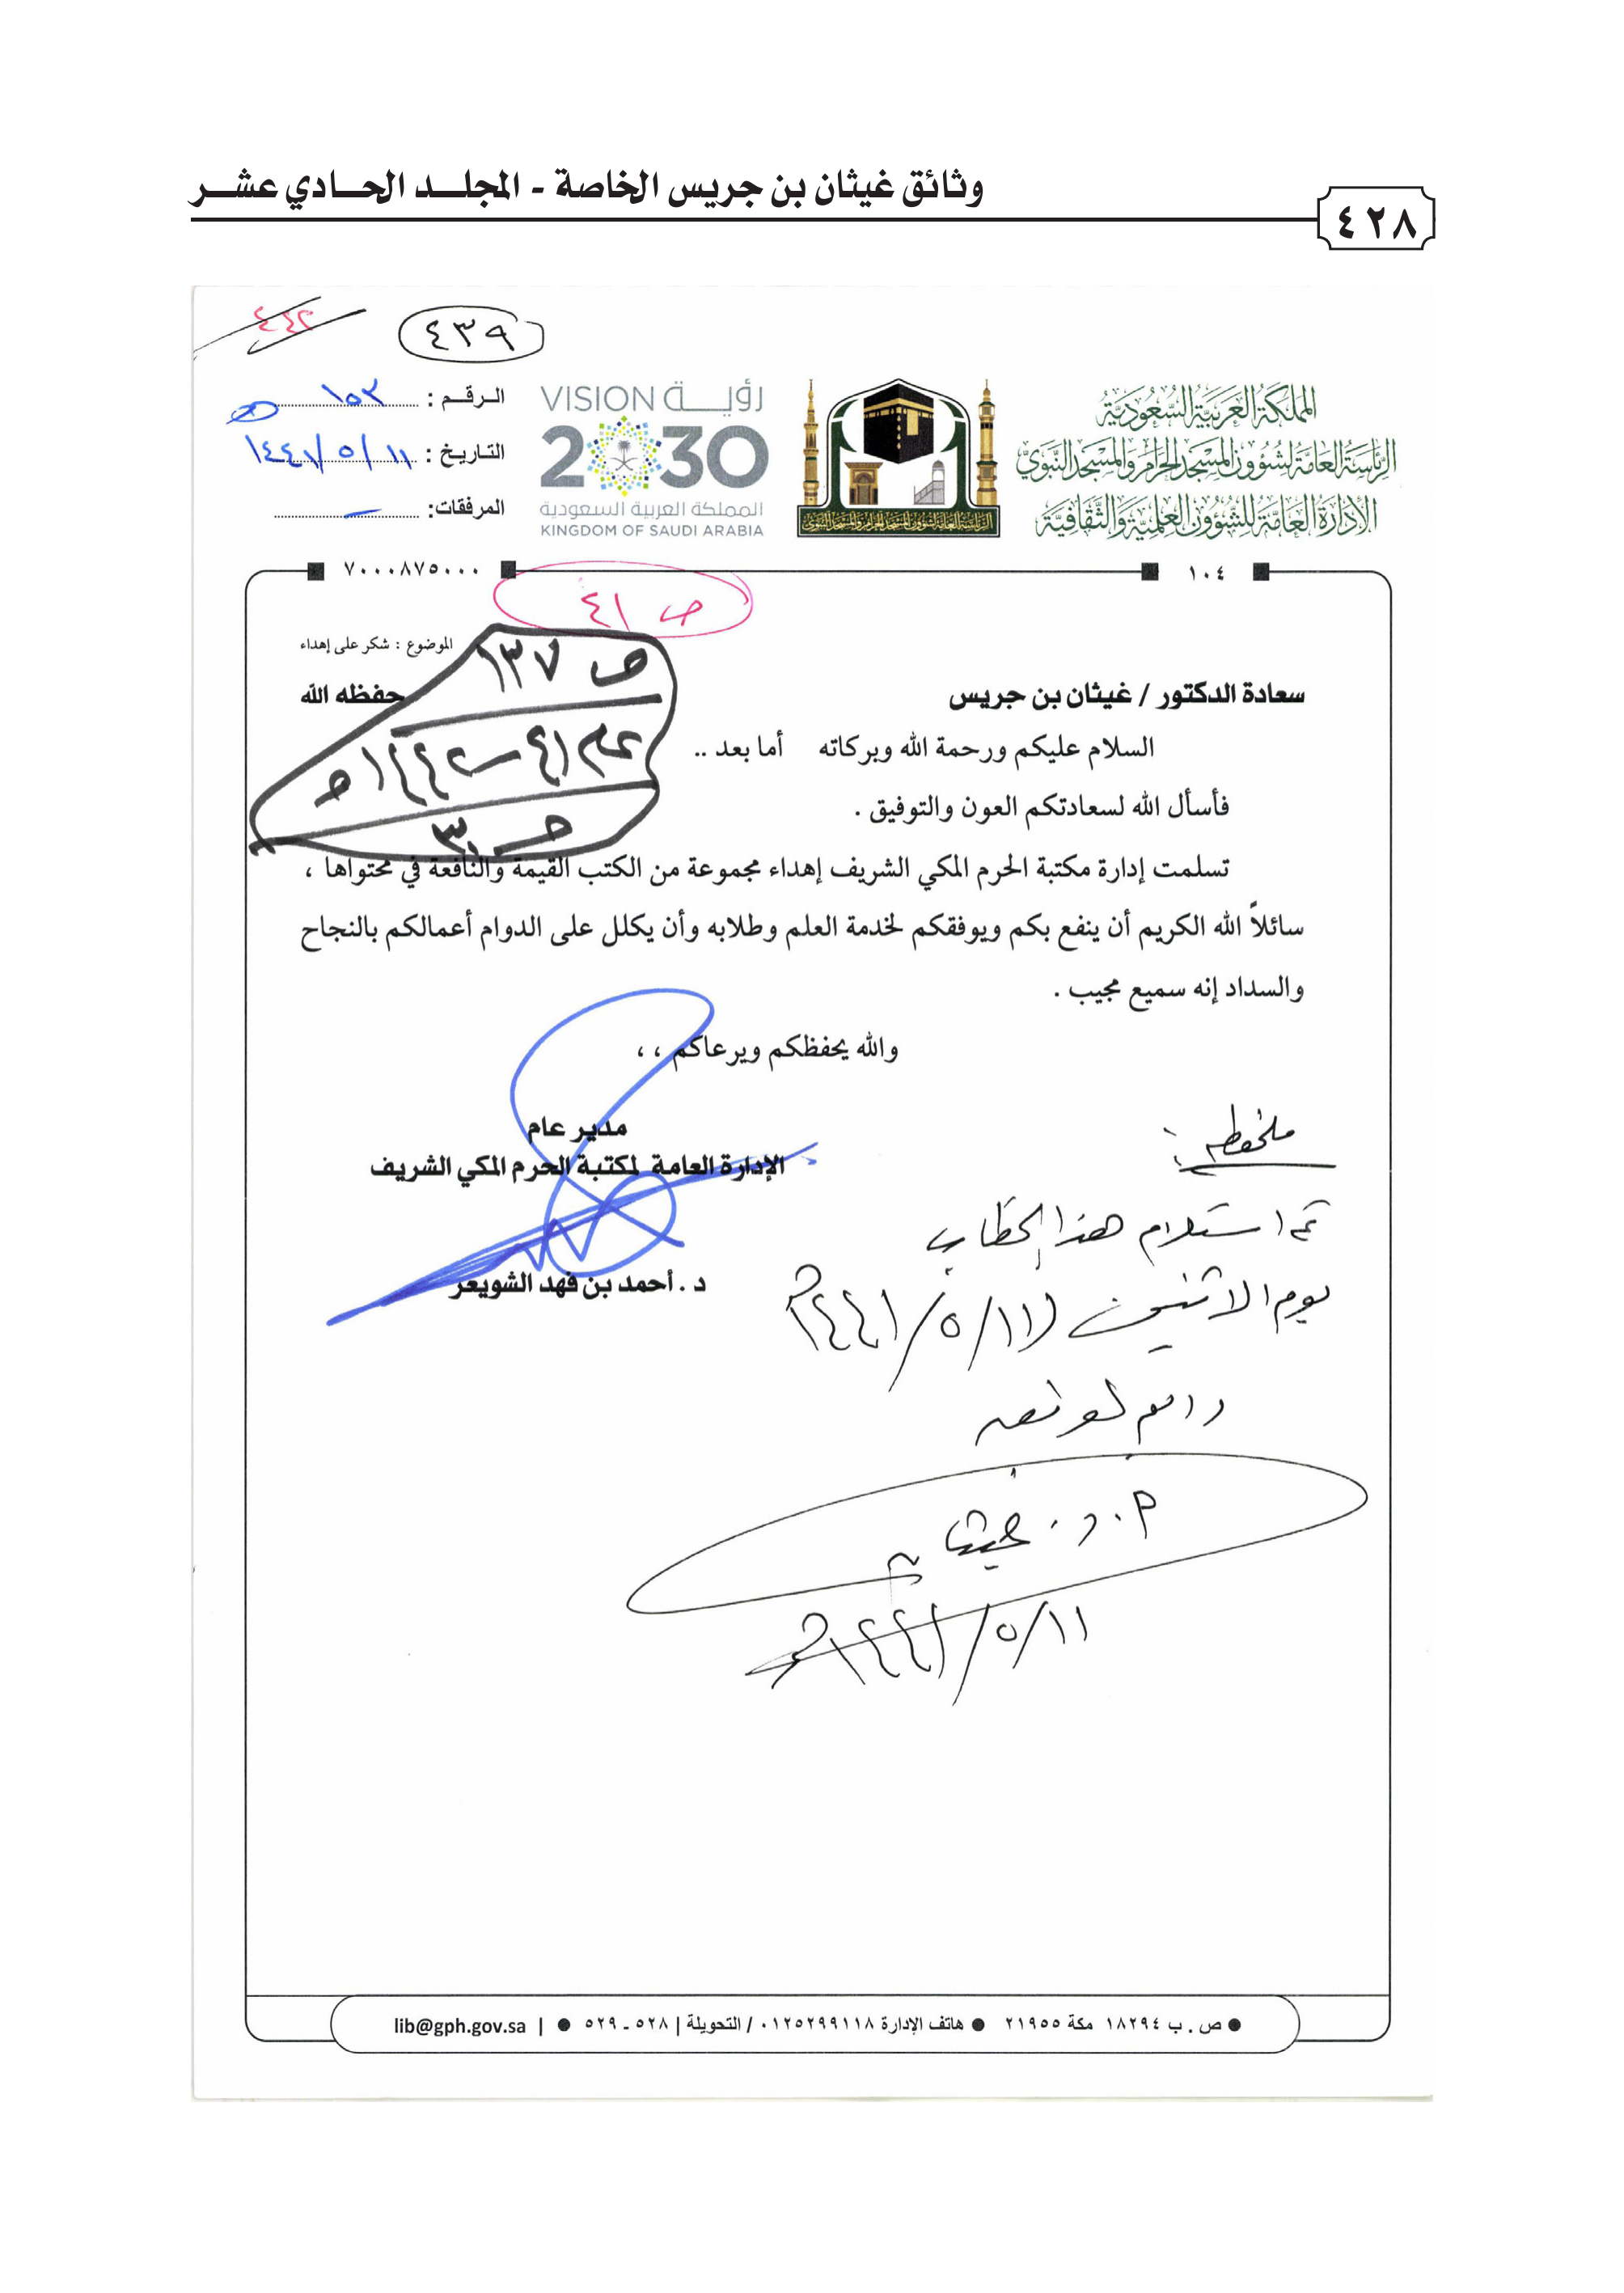 وثائق غيثان بن جريس الخاصة - المجلد الحادي عشر
٤٢٨
٤٤٢
٤٣٩
المملكة العربية السعودية
الرئاسة العامة لشؤون المسجد الحرام والمسجد النبوي
الإدارة العامة للشؤون العلمية والثقافية
الرئاسة العامة لشؤون المسجد الحرام والمسجد النبوي
VISION رؤيـــة
2030
المملكة العربية السعودية
KINGDOM OF SAUDI ARABIA
الـرقـم : ١٥٣
التاريخ : ١١/ ٥/ ١٤٤١
المرفقات: -
١٠٤
٧٠٠٠٨٧٥٠٠٠
ص ٤١
الموضوع : شكر على إهداء
ص ١٣٧
عام ٤١-١٤٤٢هـ
حـ ٣
سعادة الدكتور / غيثان بن جريس حفظه الله
السلام عليكم ورحمة الله وبركاته أما بعد ..
فأسأل الله لسعادتكم العون والتوفيق .
تسلمت إدارة مكتبة الحرم المكي الشريف إهداء مجموعة من الكتب القيمة والنافعة في محتواها ،
سائلاً الله الكريم أن ينفع بكم ويوفقكم لخدمة العلم وطلابه وأن يكلل على الدوام أعمالكم بالنجاح
والسداد إنه سميع مجيب .
والله يحفظكم ويرعاكم ، ،
مدير عام
الإدارة العامة لمكتبة الحرم المكي الشريف
د . أحمد بن فهد الشويعر
ملحوظة :
تم استلام هذا الخطاب
يوم الاثنين (١١/ ٥/ ١٤٤١هـ
والله الموفق
أ. د. غيثان
١١/ ٥/ ١٤٤١هـ
● ص . ب ١٨٢٩٤ مكة ٢١٩٥٥ ● هاتف الإدارة ٠١٢٥٢٩٩١١٨ / التحويلة | ٥٢٨ ـ ٥٢٩ ● | lib@gph.gov.sa